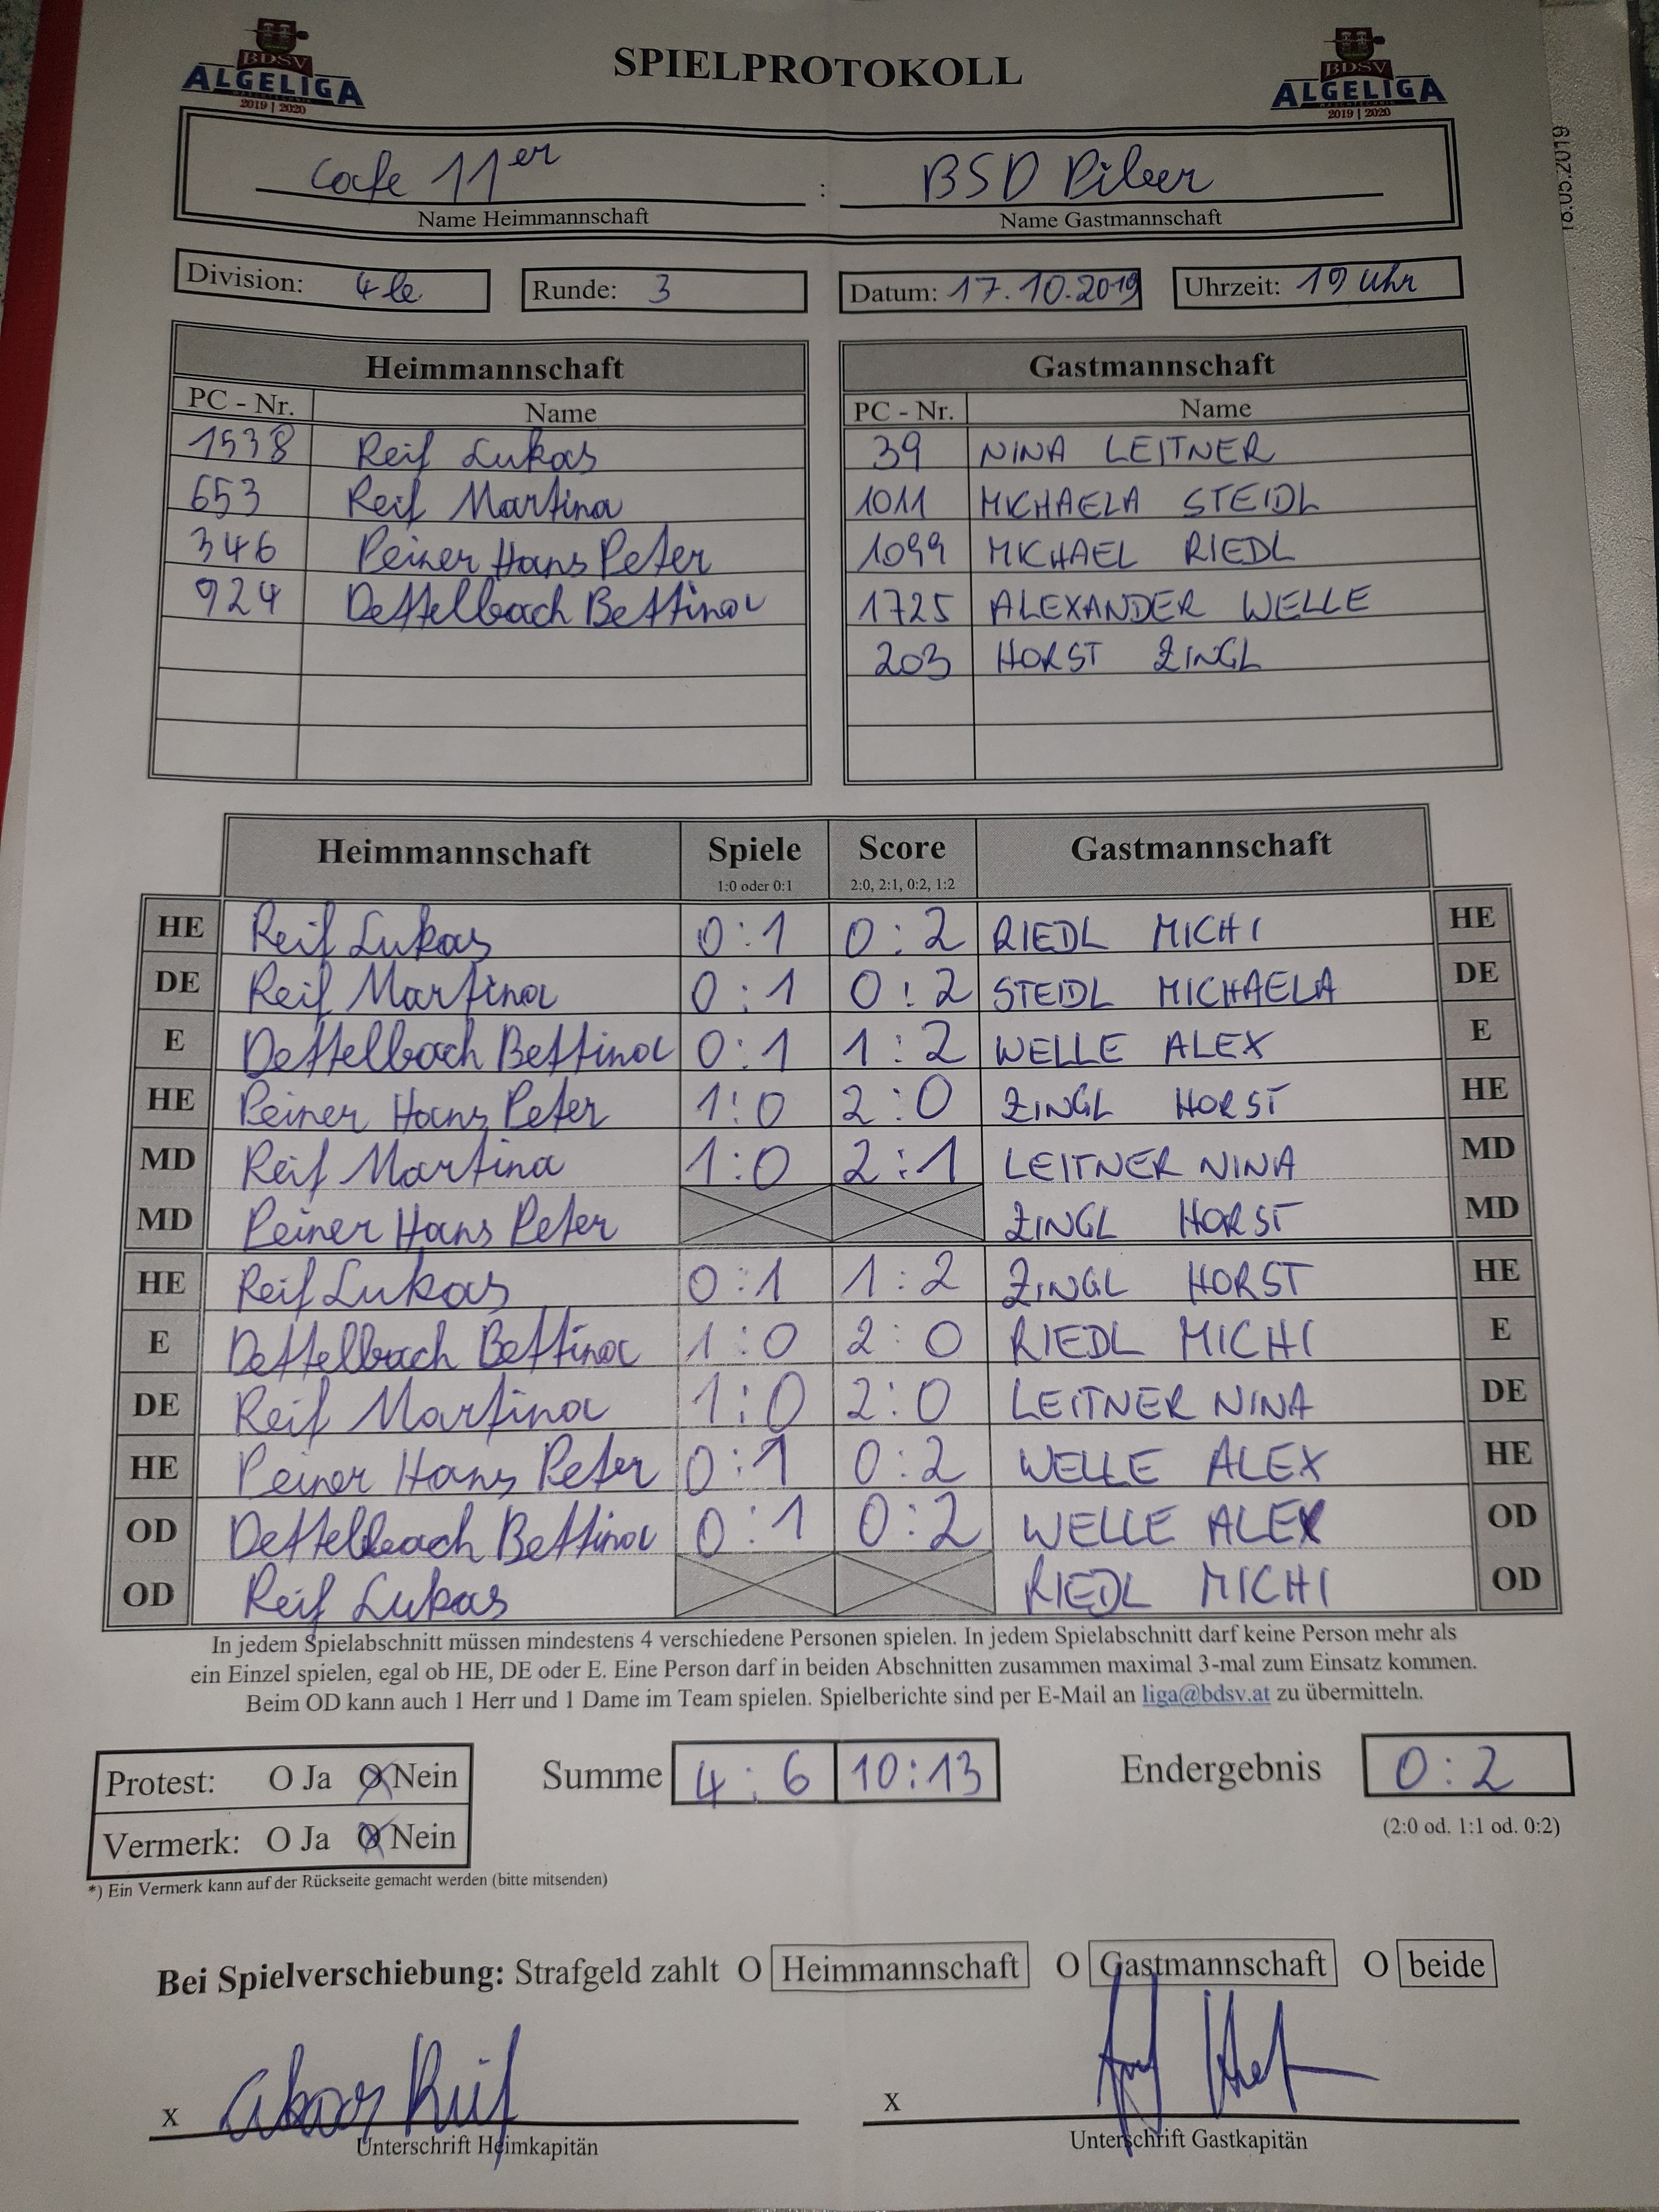 BDSV
ALGELIGA
2019 | 2020
SPIELPROTOKOLL
BDSV
ALGELIGA
2019 | 2020
Cafe 11er : BSD Biber
Name Heimmannschaft Name Gastmannschaft
Division: 4 Runde: 3 Datum: 17.10.2019 Uhrzeit: 19 Uhr
Heimmannschaft Gastmannschaft
PC - Nr. Name PC - Nr. Name
1538 Reif Lukas 39 NINA LEITNER
653 Reif Martina 1011 MICHAELA STEIDL
346 Peiner Hans Peter 1099 MICHAEL RIEDL
924 Dettelbach Bettina 1725 ALEXANDER WELLE
203 HORST ZINGL
Heimmannschaft Spiele Score Gastmannschaft
1:0 oder 0:1 2:0, 2:1, 0:2, 1:2
HE Reif Lukas 0:1 0:2 RIEDL MICHI HE
DE Reif Martina 0:1 0:2 STEIDL MICHAELA DE
E Dettelbach Bettina 0:1 1:2 WELLE ALEX E
HE Peiner Hans Peter 1:0 2:0 ZINGL HORST HE
MD Reif Martina 1:0 2:1 LEITNER NINA MD
MD Peiner Hans Peter ZINGL HORST MD
HE Reif Lukas 0:1 1:2 ZINGL HORST HE
E Dettelbach Bettina 1:0 2:0 RIEDL MICHI E
DE Reif Martina 1:0 2:0 LEITNER NINA DE
HE Peiner Hans Peter 0:1 0:2 WELLE ALEX HE
OD Dettelbach Bettina 0:1 0:2 WELLE ALEX OD
OD Reif Lukas RIEDL MICHI OD
In jedem Spielabschnitt müssen mindestens 4 verschiedene Personen spielen. In jedem Spielabschnitt darf keine Person mehr als
ein Einzel spielen, egal ob HE, DE oder E. Eine Person darf in beiden Abschnitten zusammen maximal 3-mal zum Einsatz kommen.
Beim OD kann auch 1 Herr und 1 Dame im Team spielen. Spielberichte sind per E-Mail an liga@bdsv.at zu übermitteln.
Protest: O Ja O Nein Summe 4:6 10:13 Endergebnis 0:2
Vermerk: O Ja O Nein (2:0 od. 1:1 od. 0:2)
*) Ein Vermerk kann auf der Rückseite gemacht werden (bitte mitsenden)
Bei Spielverschiebung: Strafgeld zahlt O Heimmannschaft O Gastmannschaft O beide
x x
Unterschrift Heimkapitän Unterschrift Gastkapitän